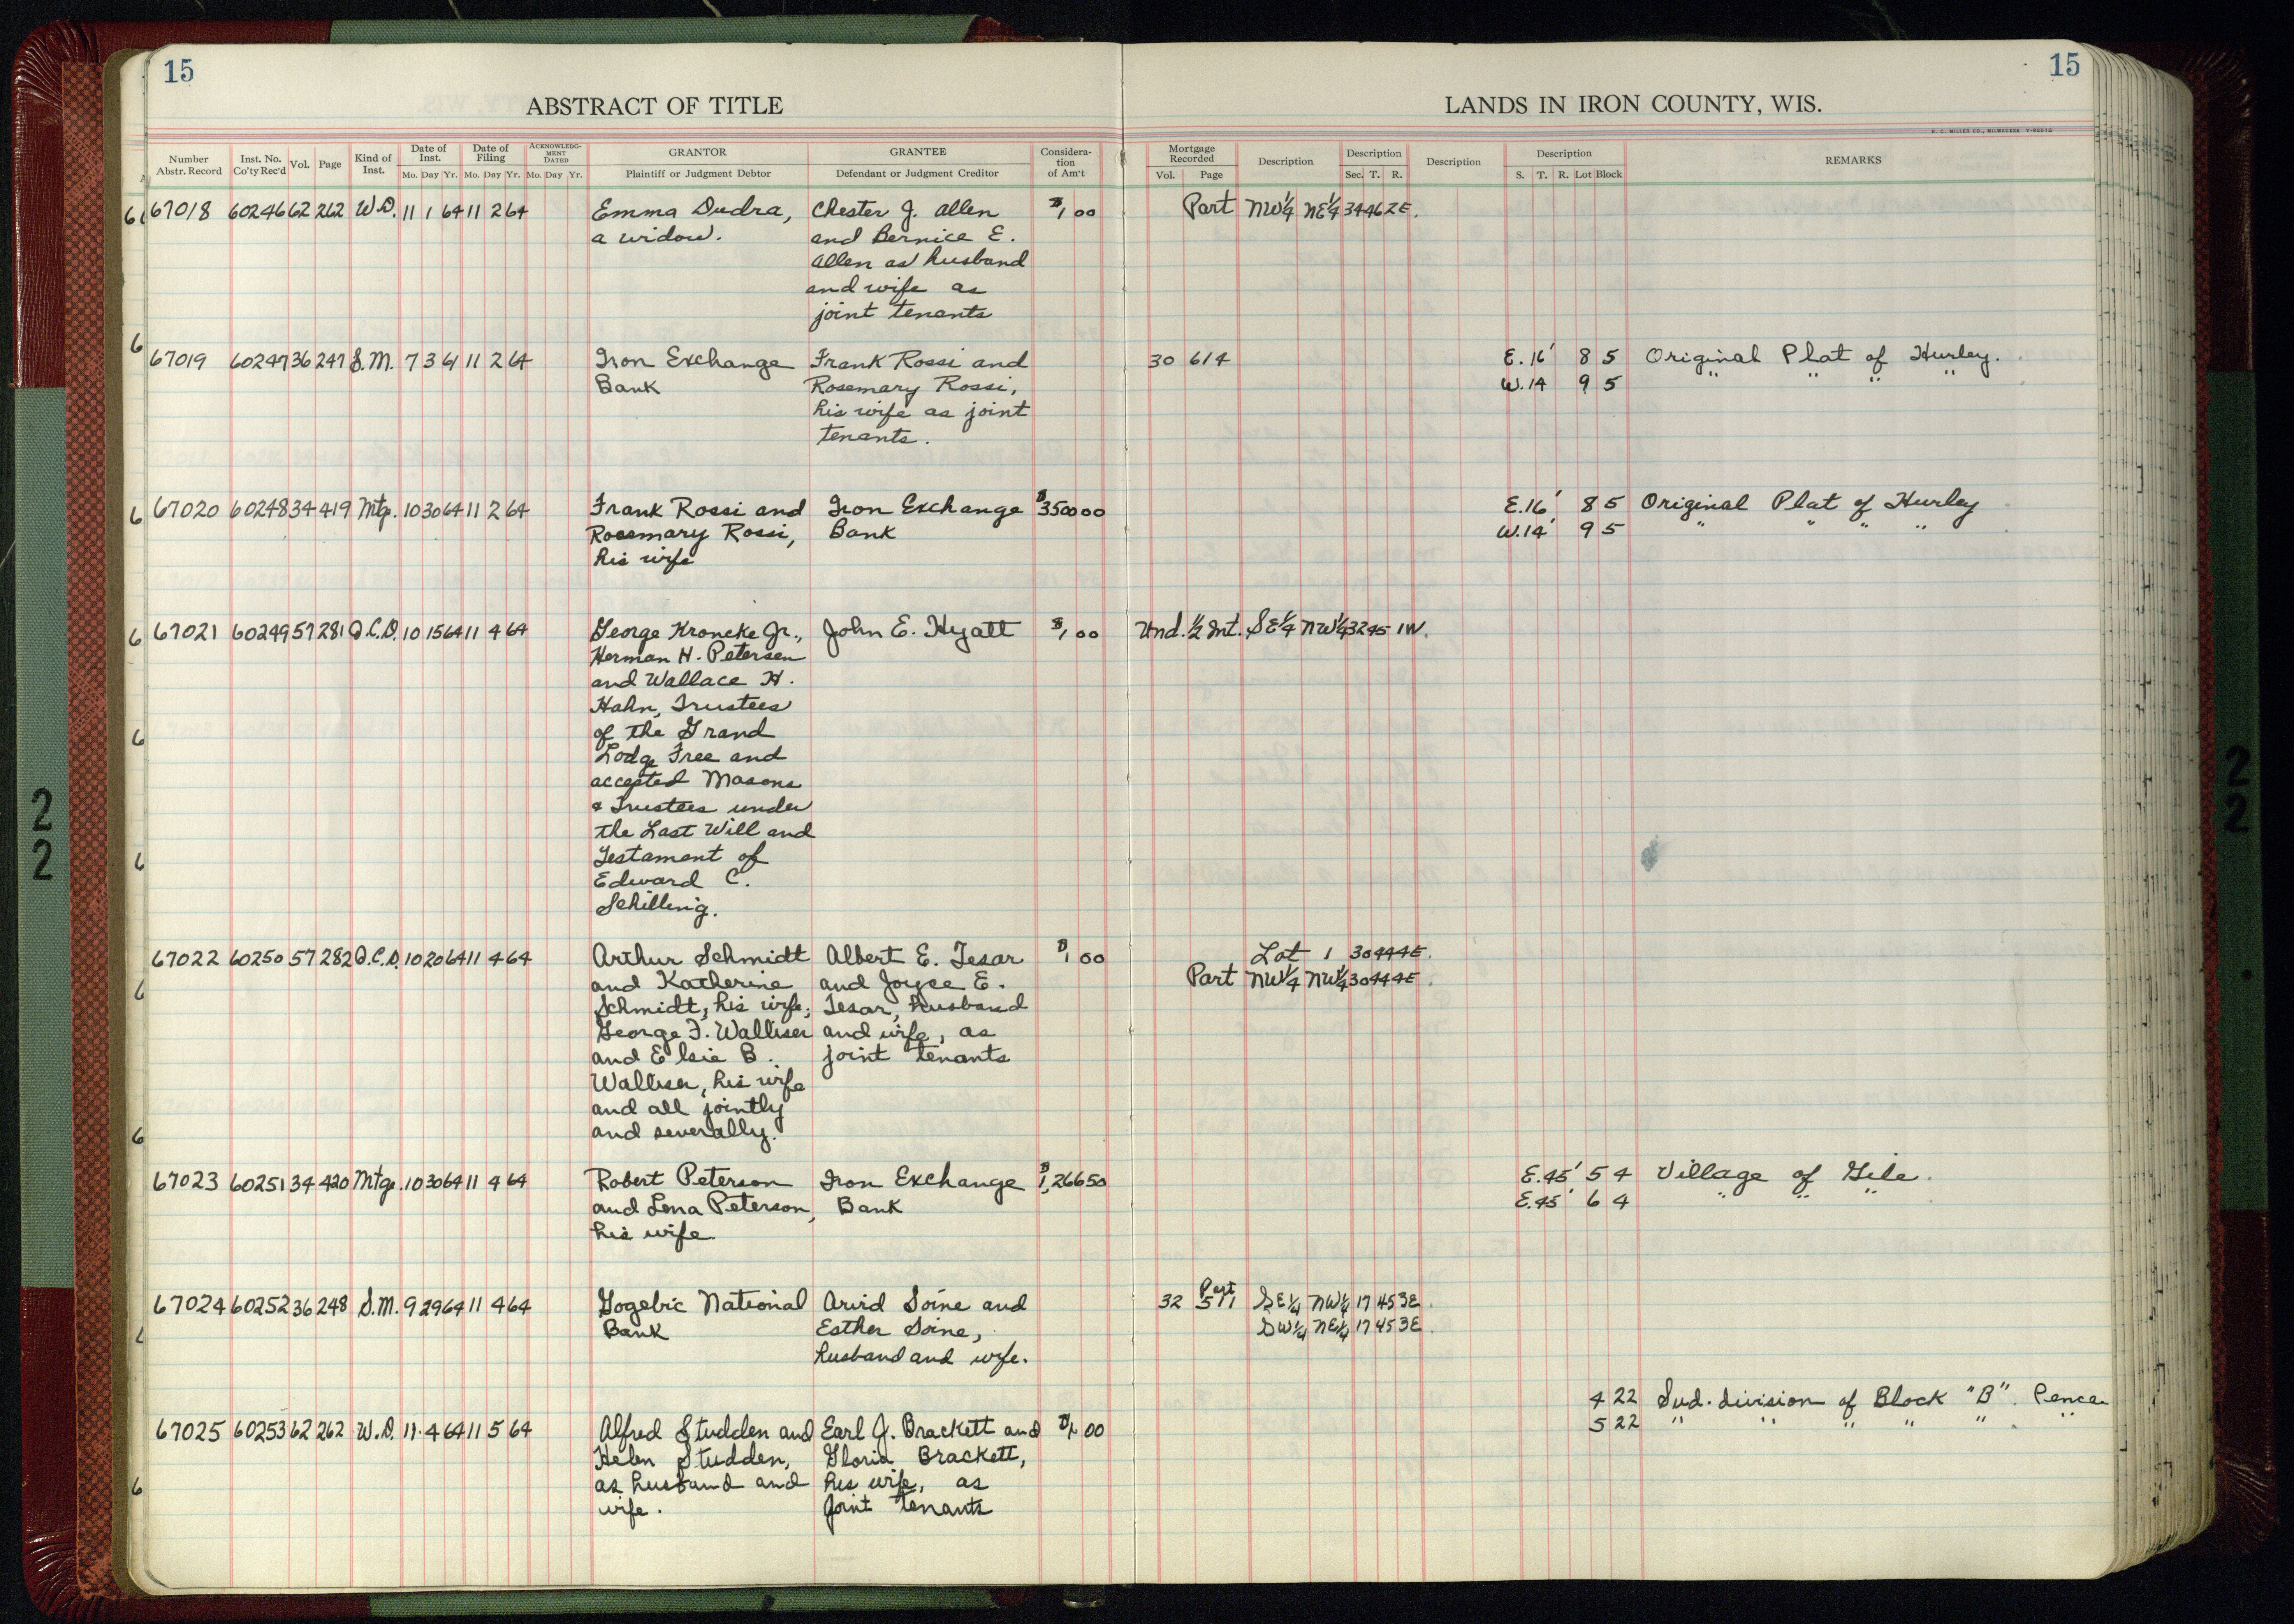 15
15
ABSTRACT OF TITLE
LANDS IN IRON COUNTY, WIS.
H. C. MILLER CO., MILWAUKEE
Number Abstr. Record Inst. No. Co'ty Rec'd Vol. Page Kind of Inst. Date of Inst. Mo. Day Yr. Date of Filing Mo. Day Yr. ACKNOWLEDGMENT DATED Mo. Day Yr. GRANTOR Plaintiff or Judgment Debtor GRANTEE Defendant or Judgment Creditor Consideration of Am't Mortgage Recorded Vol. Page Description Description Sec. T. R. Description Description S. T. R. Lot Block REMARKS
67018 60246 62 262 W.D. 11 1 64 11 2 64 Emma Dudra, Chester J. Allen $1 00 Part NW¼ NE¼ 34 46 2E.
a widow. and Bernice E.
Allen as husband
and wife as
joint tenants
67019 60247 36 247 S.M. 7 3 61 11 2 64 Iron Exchange Frank Rossi and 30 614 E. 16' 8 5 Original Plat of Hurley.
Bank Rosemary Rossi, W. 14 9 5 " " " "
his wife as joint
tenants.
67020 60248 34 419 Mtg. 10 30 64 11 2 64 Frank Rossi and Iron Exchange $3500 00 E. 16' 8 5 Original Plat of Hurley
Rosemary Rossi, Bank W. 14' 9 5 " " " "
his wife
67021 60249 57 281 Q.C.D. 10 15 64 11 4 64 George Kroncke Jr., John E. Hyatt $1 00 Und. ½ Int. SE¼ NW¼ 32 45 1W.
Herman H. Petersen
and Wallace H.
Hahn, Trustees
of the Grand
Lodge Free and
accepted Masons
& Trustees under
the Last Will and
Testament of
Edward C.
Schilling.
67022 60250 57 282 Q.C.D. 10 20 64 11 4 64 Arthur Schmidt Albert E. Tesar $1 00 Lot 1 30 44 4E.
and Katherine and Joyce E. Part NW¼ NW¼ 30 44 4E.
Schmidt, his wife; Tesar, husband
George F. Walliser and wife, as
and Elsie B. joint tenants
Walliser, his wife
and all jointly
and severally.
67023 60251 34 420 Mtg. 10 30 64 11 4 64 Robert Peterson Iron Exchange $1,266 50 E. 45' 5 4 Village of Gile.
and Lena Peterson, Bank E. 45' 6 4 " " "
his wife.
67024 60252 36 248 S.M. 9 29 64 11 4 64 Gogebic National Arvid Soine and 32 511 Part SE¼ NW¼ 17 45 3E.
Bank Esther Soine, SW¼ NE¼ 17 45 3E.
husband and wife.
4 22 Sub.division of Block "B". Pence
67025 60253 62 262 W.D. 11 4 64 11 5 64 Alfred Studden and Earl J. Brackett and $1 00 5 22 " " " " " "
Helen Studden, Gloria Brackett,
as husband and his wife, as
wife. Joint tenants
22
22